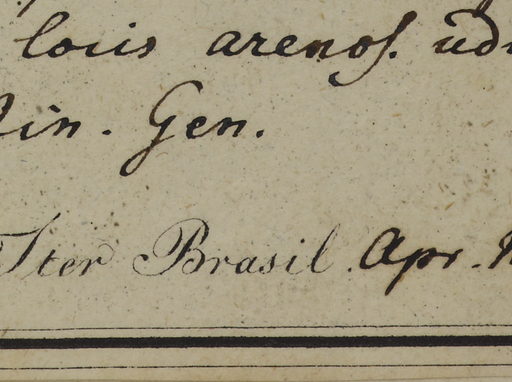 locis arenos. ud
Min. Gen.
Iter Brasil. Apr.